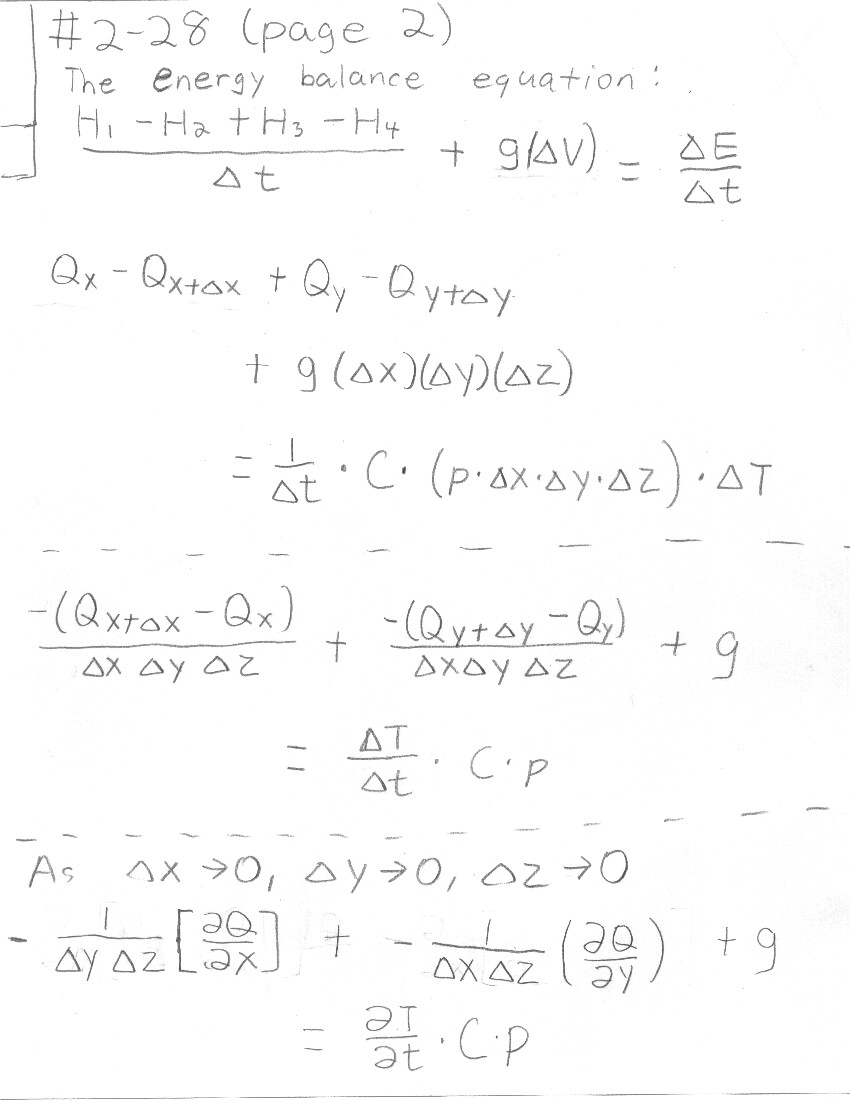 #2-28 (page 2)
The energy balance equation:
(H₁ - H₂ + H₃ - H₄)/Δt + g(ΔV) = ΔE/Δt
Qₓ - Q_{x+Δx} + Q_y - Q_{y+Δy}
+ g (Δx)(Δy)(Δz)
= 1/Δt · C · (p·Δx·Δy·Δz) · ΔT
-(Q_{x+Δx} - Qₓ)/(Δx Δy Δz) + -(Q_{y+Δy} - Q_y)/(Δx Δy Δz) + g
= ΔT/Δt · C·p
As Δx →0, Δy→0, Δz→0
- 1/(Δy Δz) [∂Q/∂x] + - 1/(Δx Δz) (∂Q/∂y) + g
= ∂T/∂t · C·p